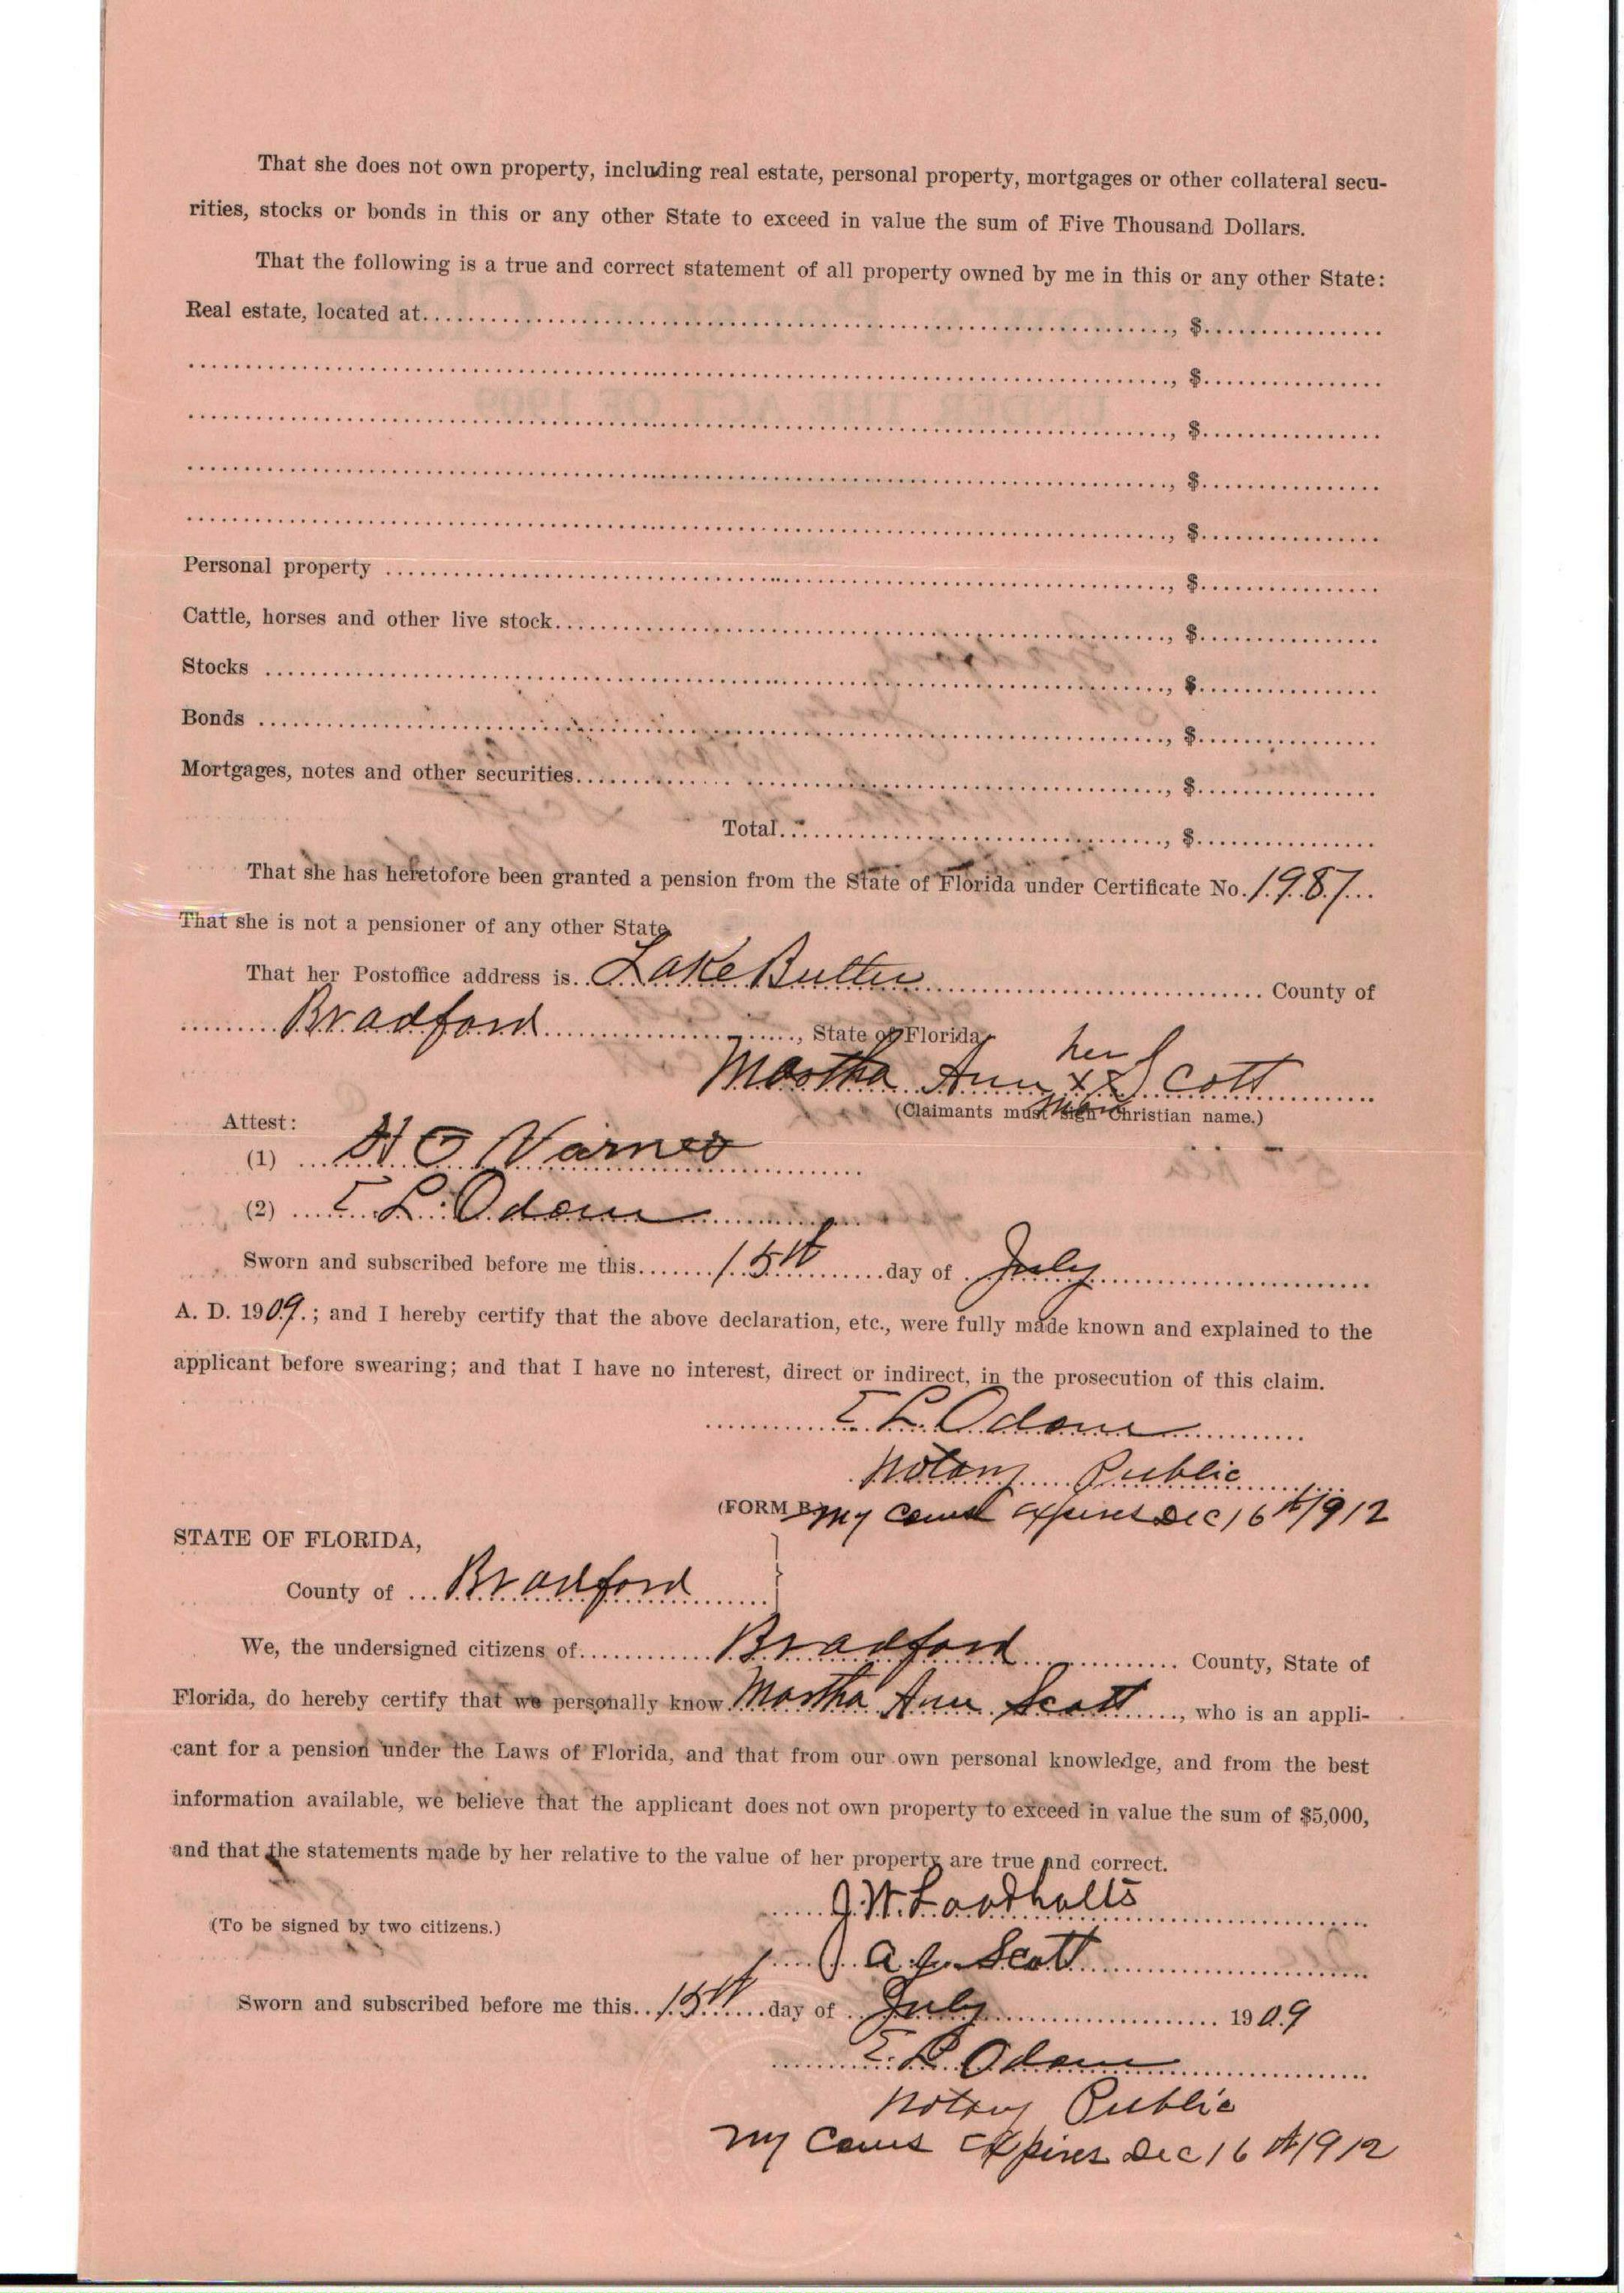 That she does not own property, including real estate, personal property, mortgages or other collateral secu-
rities, stocks or bonds in this or any other State to exceed in value the sum of Five Thousand Dollars.
That the following is a true and correct statement of all property owned by me in this or any other State:
Real estate, located at ..., $
, $
, $
, $
, $
Personal property ..., $
Cattle, horses and other live stock ..., $
Stocks ..., $
Bonds ..., $
Mortgages, notes and other securities ..., $
Total ..., $
That she has heretofore been granted a pension from the State of Florida under Certificate No. 1987
That she is not a pensioner of any other State
That her Postoffice address is Lake Butler County of
Bradford, State of Florida
her
Martha Ann x Scott
mark
(Claimants must sign Christian name.)
Attest:
(1) Varnes
(2) E L Odom
Sworn and subscribed before me this 15th day of July
A. D. 1909.; and I hereby certify that the above declaration, etc., were fully made known and explained to the
applicant before swearing; and that I have no interest, direct or indirect, in the prosecution of this claim.
E L. Odom
Notary Public
(FORM B.) My Comms expires Dec 16th 1912
STATE OF FLORIDA,
County of Bradford
We, the undersigned citizens of Bradford County, State of
Florida, do hereby certify that we personally know Martha Ann Scott, who is an appli-
cant for a pension under the Laws of Florida, and that from our own personal knowledge, and from the best
information available, we believe that the applicant does not own property to exceed in value the sum of $5,000,
and that the statements made by her relative to the value of her property are true and correct.
J. W. Loadholts
(To be signed by two citizens.)
Scott
Sworn and subscribed before me this 15th day of July 1909
E L Odom
Notary Public
My Comms expires Dec 16th 1912